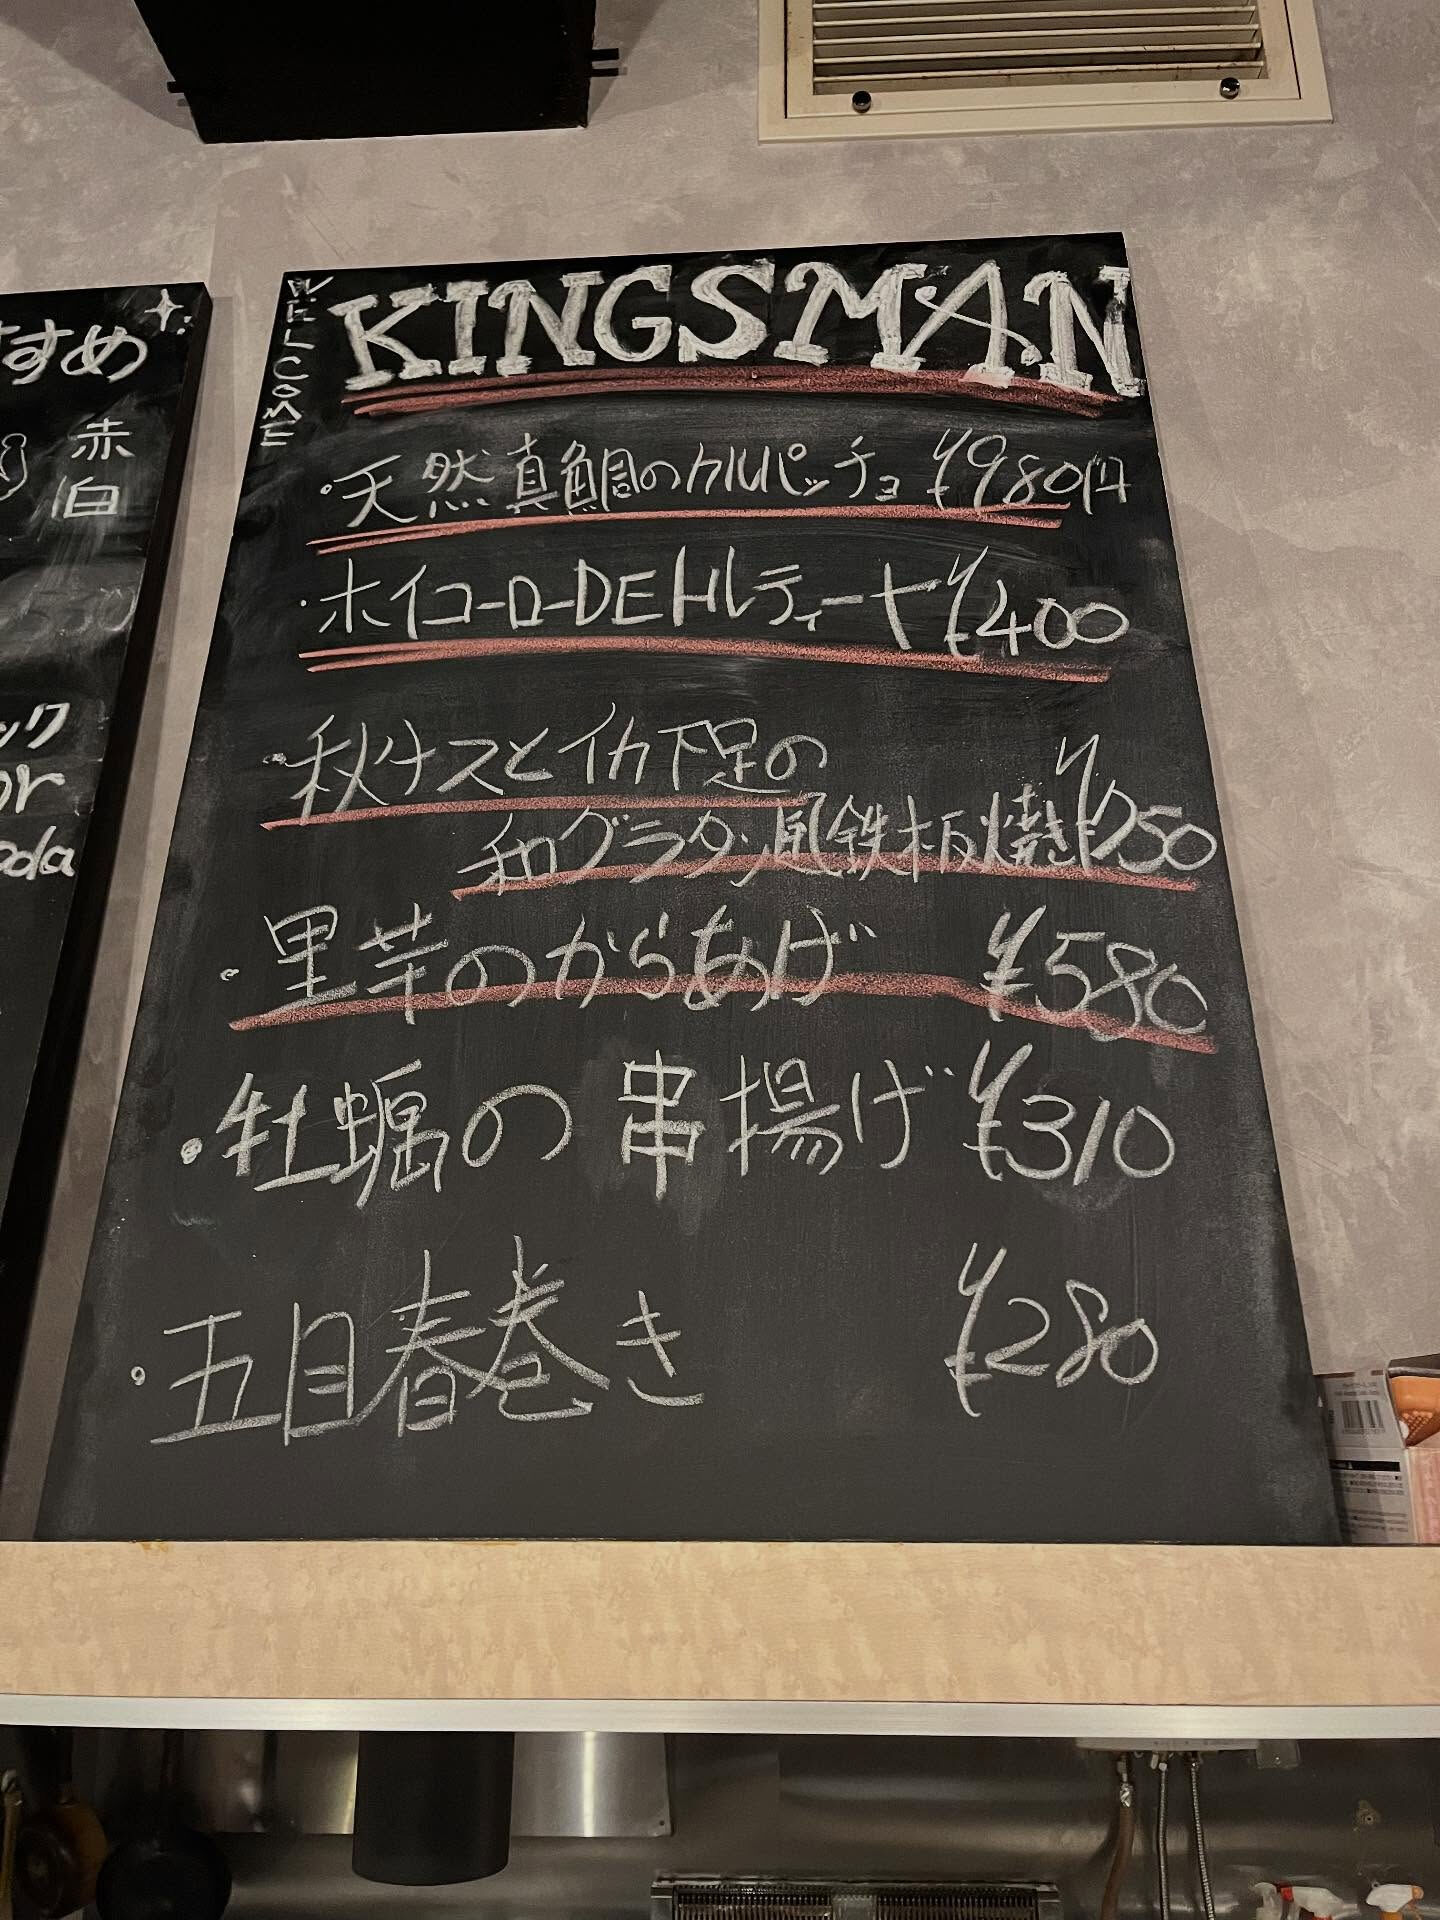 すすめ
赤
白
ック
or
oda
WELCOME
KINGSMAN
・天然真鯛のカルパッチョ ¥980円
・ホイコーローDEトルティーヤ ¥400
・秋ナスとイカ下足の
和グラタン風鉄板焼き ¥750
・里芋のからあげ ¥580
・牡蠣の串揚げ ¥310
・五目春巻き ¥280